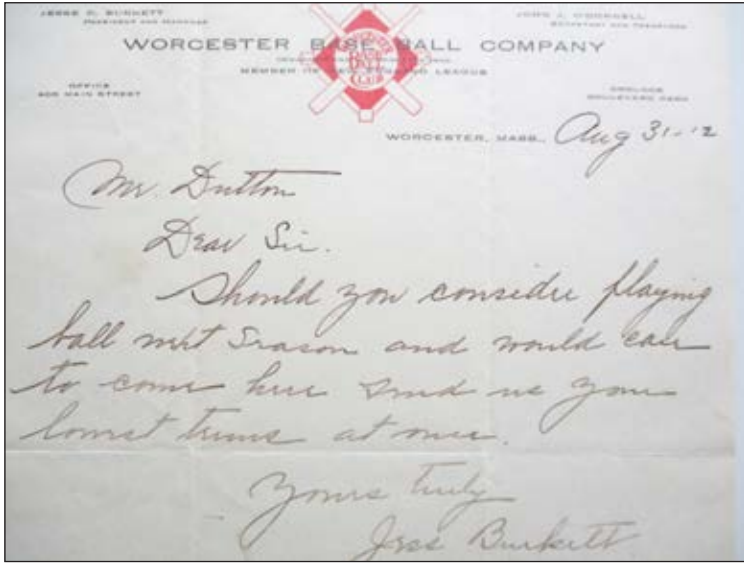 JESSE C. BURKETT
PRESIDENT AND MANAGER
JOHN J. O'DONNELL
SECRETARY AND TREASURER
WORCESTER BASE BALL COMPANY
MEMBER OF NEW ENGLAND LEAGUE
WORCESTER
BASE
BALL
CLUB
OFFICE
MAIN STREET
GROUNDS
BOULEVARD PARK
WORCESTER, MASS., Aug 31-12
Mr. Dutton
Dear Sir.
Should you consider playing
ball next Season and would care
to come here send me your
lowest terms at once.
Yours truly
Jess Burkett